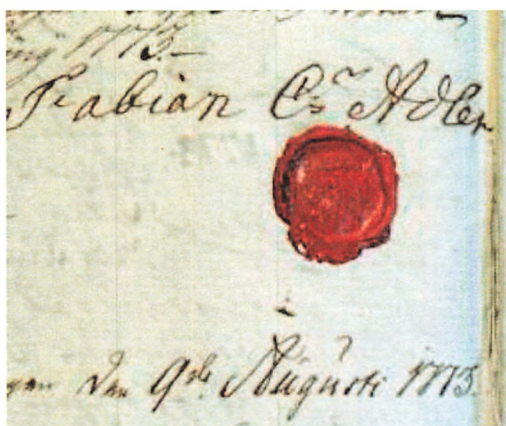 1773.
Fabian C:s Adler
den 9de Augusti 1773.